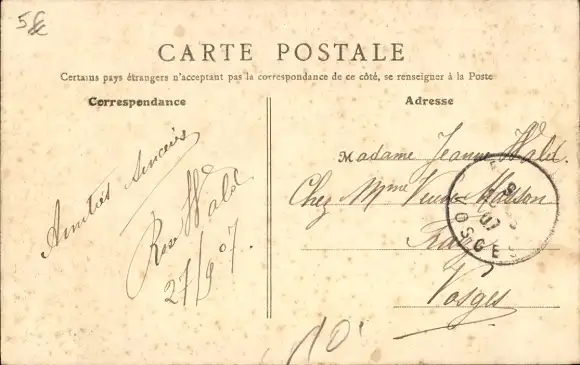 5€
CARTE POSTALE
Certains pays étrangers n'acceptant pas la correspondance de ce côté, se renseigner à la Poste
Correspondance
Adresse
Amitiés sincères
Rose Wald
27/9 07.
Madame Jeanne Wald.
Chez Mme Veuve
Vosges
VOSGES
07
10